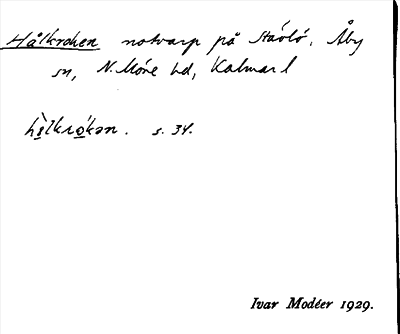 Hålkroken notvarp på Stáóló, Åby
sn, N. Möre hd, Kalmar l
hǫ̀lkrǫ́kən. s. 34.
Ivar Modéer 1929.